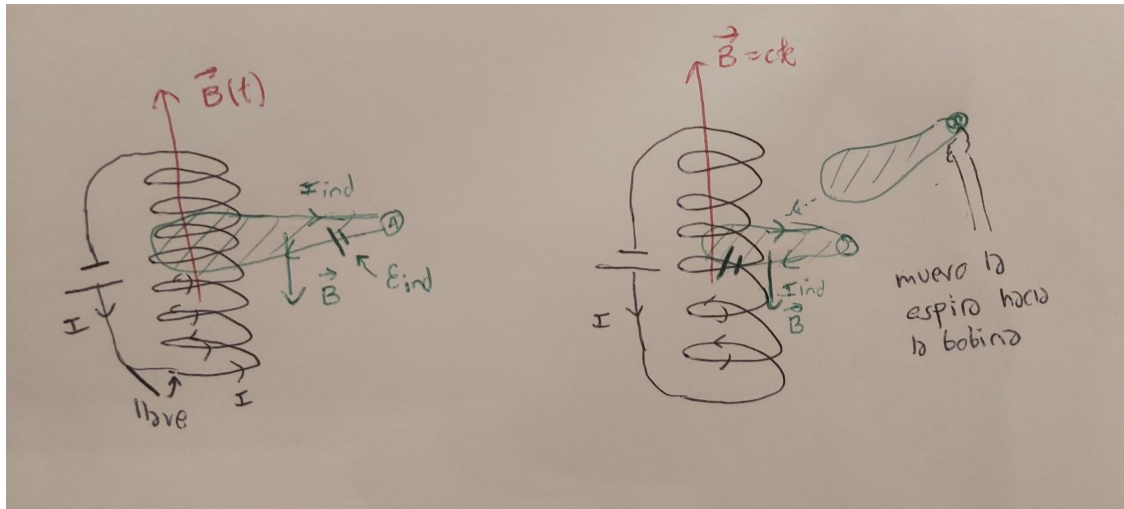 B(t)
I ind
A
B
ε ind
I
I
llave
B = cte
I ind
B
I
muevo la
espira hacia
la bobina